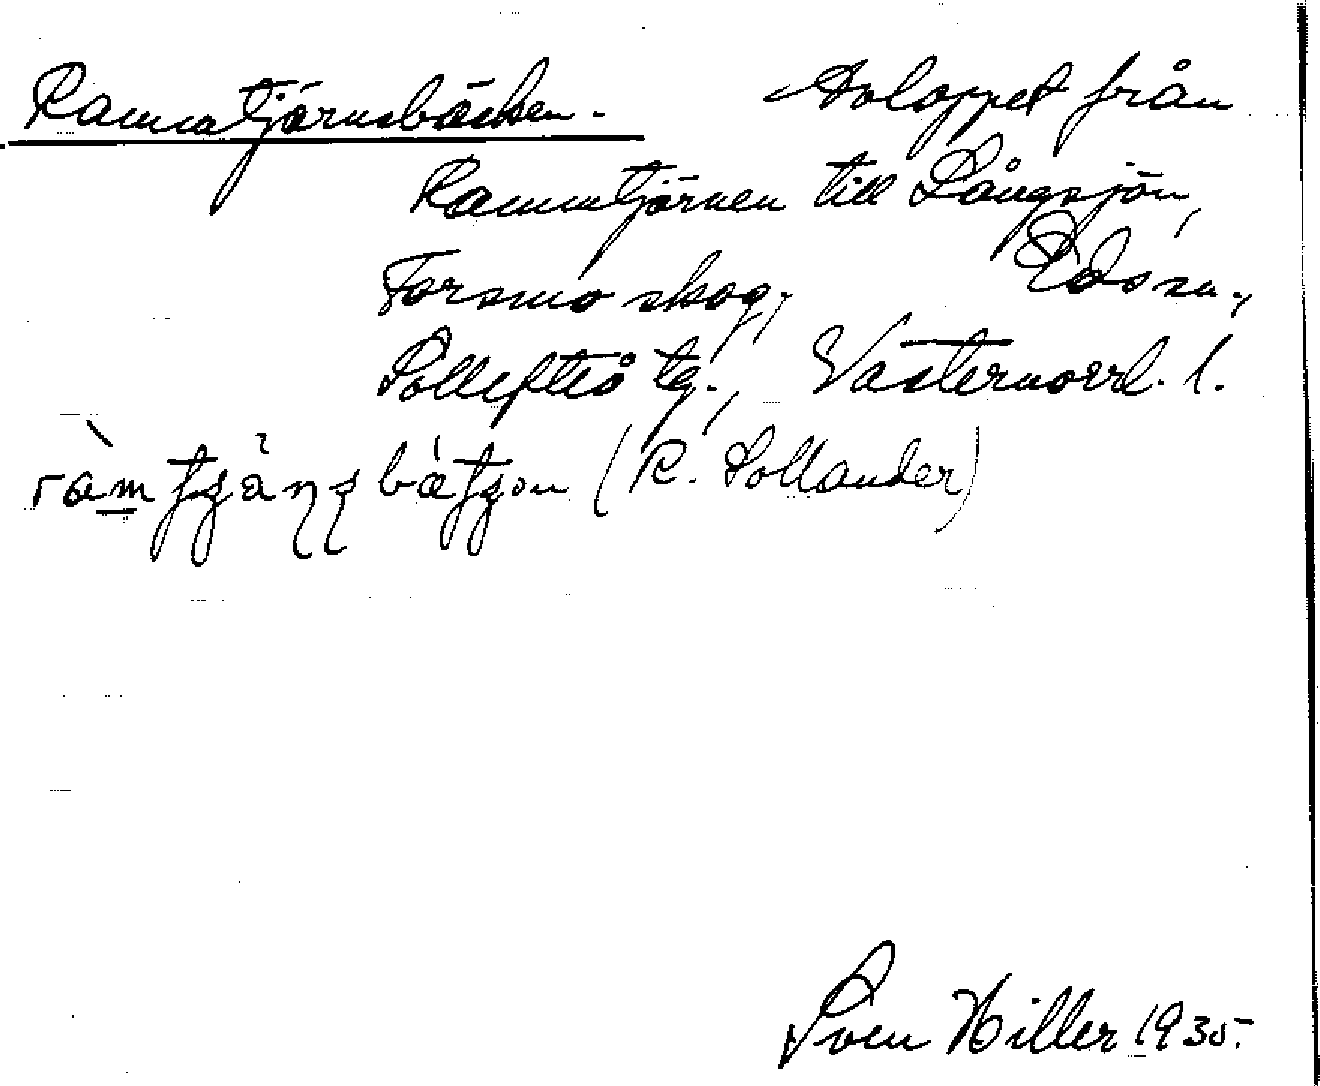 Rammtjärnsbäcken. Avloppet från
Rammtjärnen till Långsjön,
Forsmo skog, Eds sn.,
Sollefteå tg., Västernorrl. l.
(R. Sollander)
Sven Hiller 1935.